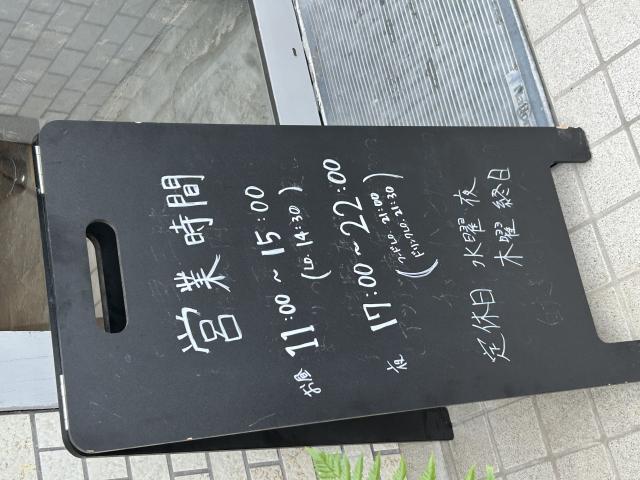 営業時間
お昼 11:00~15:00
(L.O. 14:30)
夜 17:00~22:00
(フードL.O. 21:00
ドリンクL.O. 21:30)
定休日 水曜 夜
木曜 終日